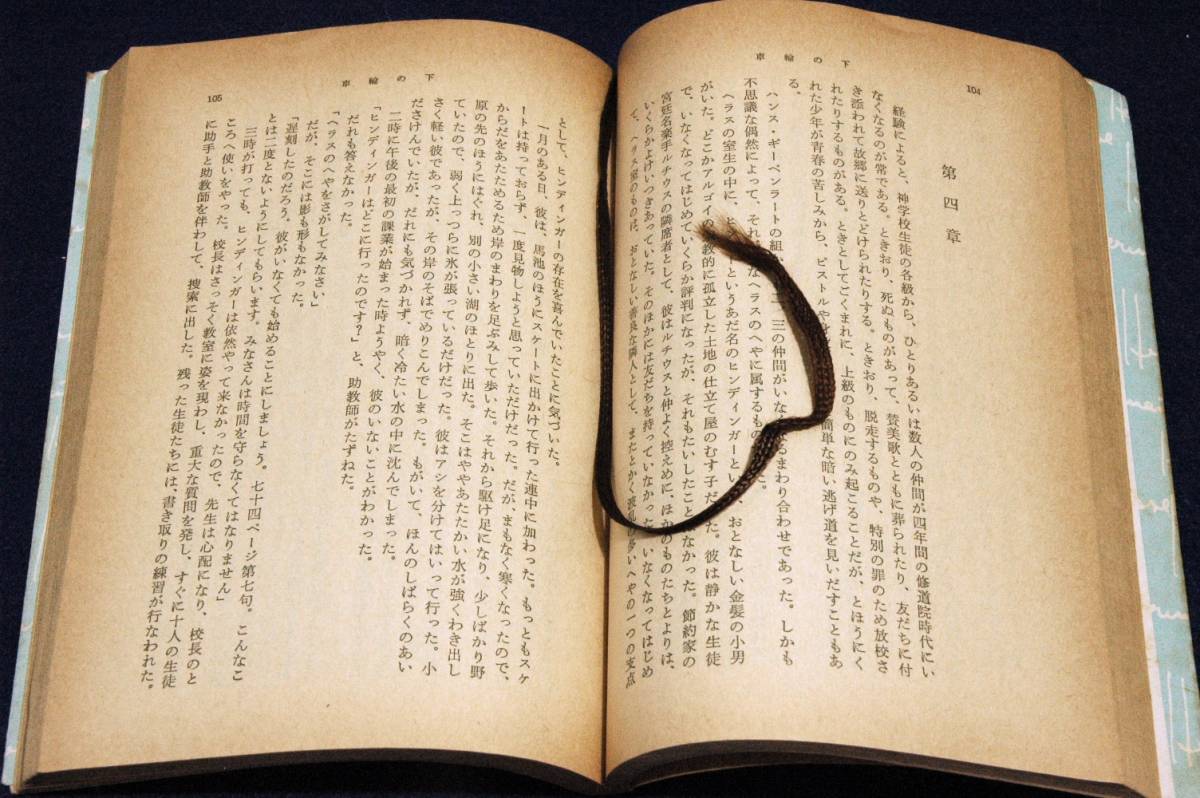 104
車輪の下
第四章
経験によると、神学校生徒の各級から、ひとりあるいは数人の仲間が四年間の修道院時代にい
なくなるのが常である。ときおり、死ぬものがあって、賛美歌とともに葬られたり、友だちに付
き添われて故郷に送りとどけられたりする。ときおり、脱走するものや、特別の罪のため放校さ
れたりするものがある。ときとしてごくまれに、上級のものにのみ起こることだが、とほうにく
れた少年が青春の苦しみから、ピストルや 簡単な暗い逃げ道を見いだすこともあ
る。
ハンス・ギーベンラートの組 二、三の仲間がいな るまわり合わせであった。しかも
不思議な偶然によって、それ なヘラスのへやに属するもの た。
ヘラスの室生の中に、ヒ というあだ名のヒンディンガーとい おとなしい金髪の小男
がいた。どこかアルゴイの 教的に孤立した土地の仕立て屋のむす子だ た。彼は静かな生徒
で、いなくなってはじめていくらか評判になったが、それもたいしたこと なかった。節約家の
宮廷名楽手ルチウスの隣席者として、彼はルチウスと仲よく控えめに、ほかのものたちとよりは、
いくらかよけいつきあっていた。そのほかには友だちを持っていなかった。いなくなってはじめ
て、ヘラス室のものは、おとなしい善良な隣人として、またとかく波乱の多いへやの一つの支点
車輪の下
105
として、ヒンディンガーの存在を喜んでいたことに気づいた。
一月のある日、彼は、馬池のほうにスケートに出かけて行った連中に加わった。もっともスケ
ートは持っておらず、一度見物しようと思っていただけだった。だが、まもなく寒くなったので、
からだをあたためるため岸のまわりを足ぶみして歩いた。それから駆け足になり、少しばかり野
原の先のほうにはぐれ、別の小さい湖のほとりに出た。そこはややあたたかい水が強くわき出し
ていたので、弱く上っつらに氷が張っているだけだった。彼はアシを分けてはいって行った。小
さく軽い彼であったが、その岸のそばでめりこんでしまった。もがいて、ほんのしばらくのあい
ださけんでいたが、だれにも気づかれず、暗く冷たい水の中に沈んでしまった。
二時に午後の最初の課業が始まった時ようやく、彼のいないことがわかった。
「ヒンディンガーはどこに行ったのです?」と、助教師がたずねた。
だれも答えなかった。
「ヘラスのへやをさがしてみなさい」
だが、そこには影も形もなかった。
「遅刻したのだろう。彼がいなくても始めることにしましょう。七十四ページ第七句。こんなこ
とは二度とないようにしてもらいます。みなさんは時間を守らなくてはなりません」
三時が打っても、ヒンディンガーは依然やって来なかったので、先生は心配になり、校長のと
ころへ使いをやった。校長はさっそく教室に姿を現わし、重大な質問を発し、すぐに十人の生徒
に助手と助教師を伴わして、捜索に出した。残った生徒たちには、書き取りの練習が行なわれた。